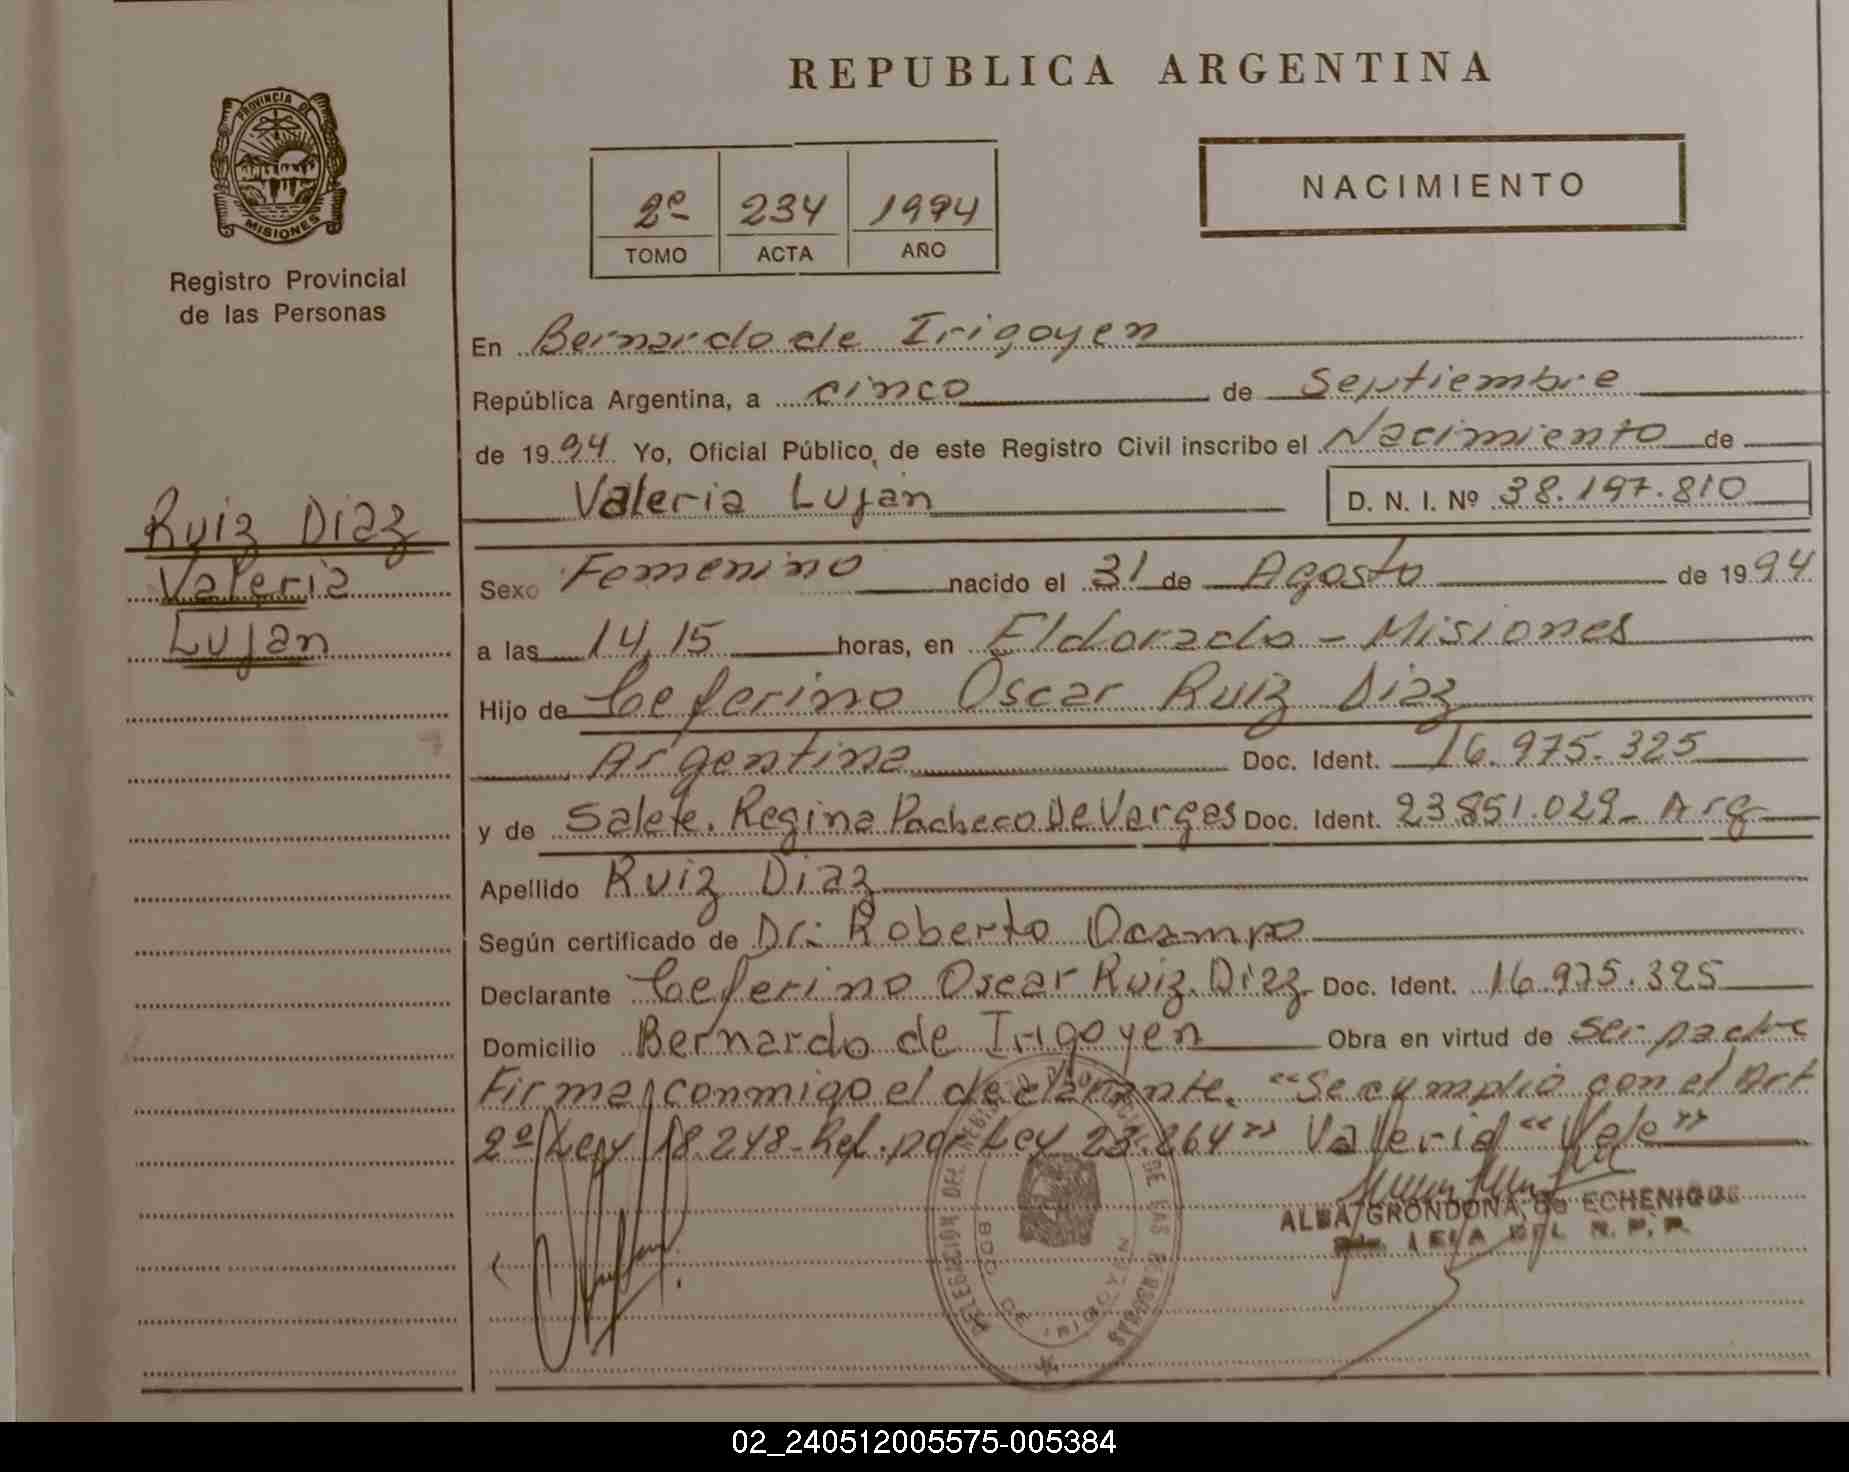 REPUBLICA ARGENTINA
PROVINCIA DE
MISIONES
Registro Provincial
de las Personas
2º 234 1994
TOMO ACTA AÑO
NACIMIENTO
Ruiz Diaz
Valeria
Lujan
En Bernardo de Irigoyen
República Argentina, a cinco de Septiembre
de 1994 Yo, Oficial Público, de este Registro Civil inscribo el Nacimiento de
Valeria Luján D. N. I. Nº 38.197.810
Sexo Femenino nacido el 31 de Agosto de 1994
a las 14,15 horas, en Eldorado - Misiones
Hijo de Ceferino Oscar Ruiz Diaz
Argentina Doc. Ident. 16.975.325
y de Salete Regina Pacheco De Vargas Doc. Ident. 23.851.029 - Arg
Apellido Ruiz Diaz
Según certificado de Dr: Roberto Ocampo
Declarante Ceferino Oscar Ruiz Diaz Doc. Ident. 16.975.325
Domicilio Bernardo de Irigoyen Obra en virtud de ser padre
Firma conmigo el declarante. "Se cumplió con el Art
2º Ley 18.248 - Ref. por Ley 23.264" Valeria "Vale"
ALBA GRONDONA de ECHENIQUE
DEL R. P. P.
DELEGACION DEL REGISTRO PROVINCIAL DE LAS PERSONAS
BDO. DE IRIGOYEN
02_240512005575-005384